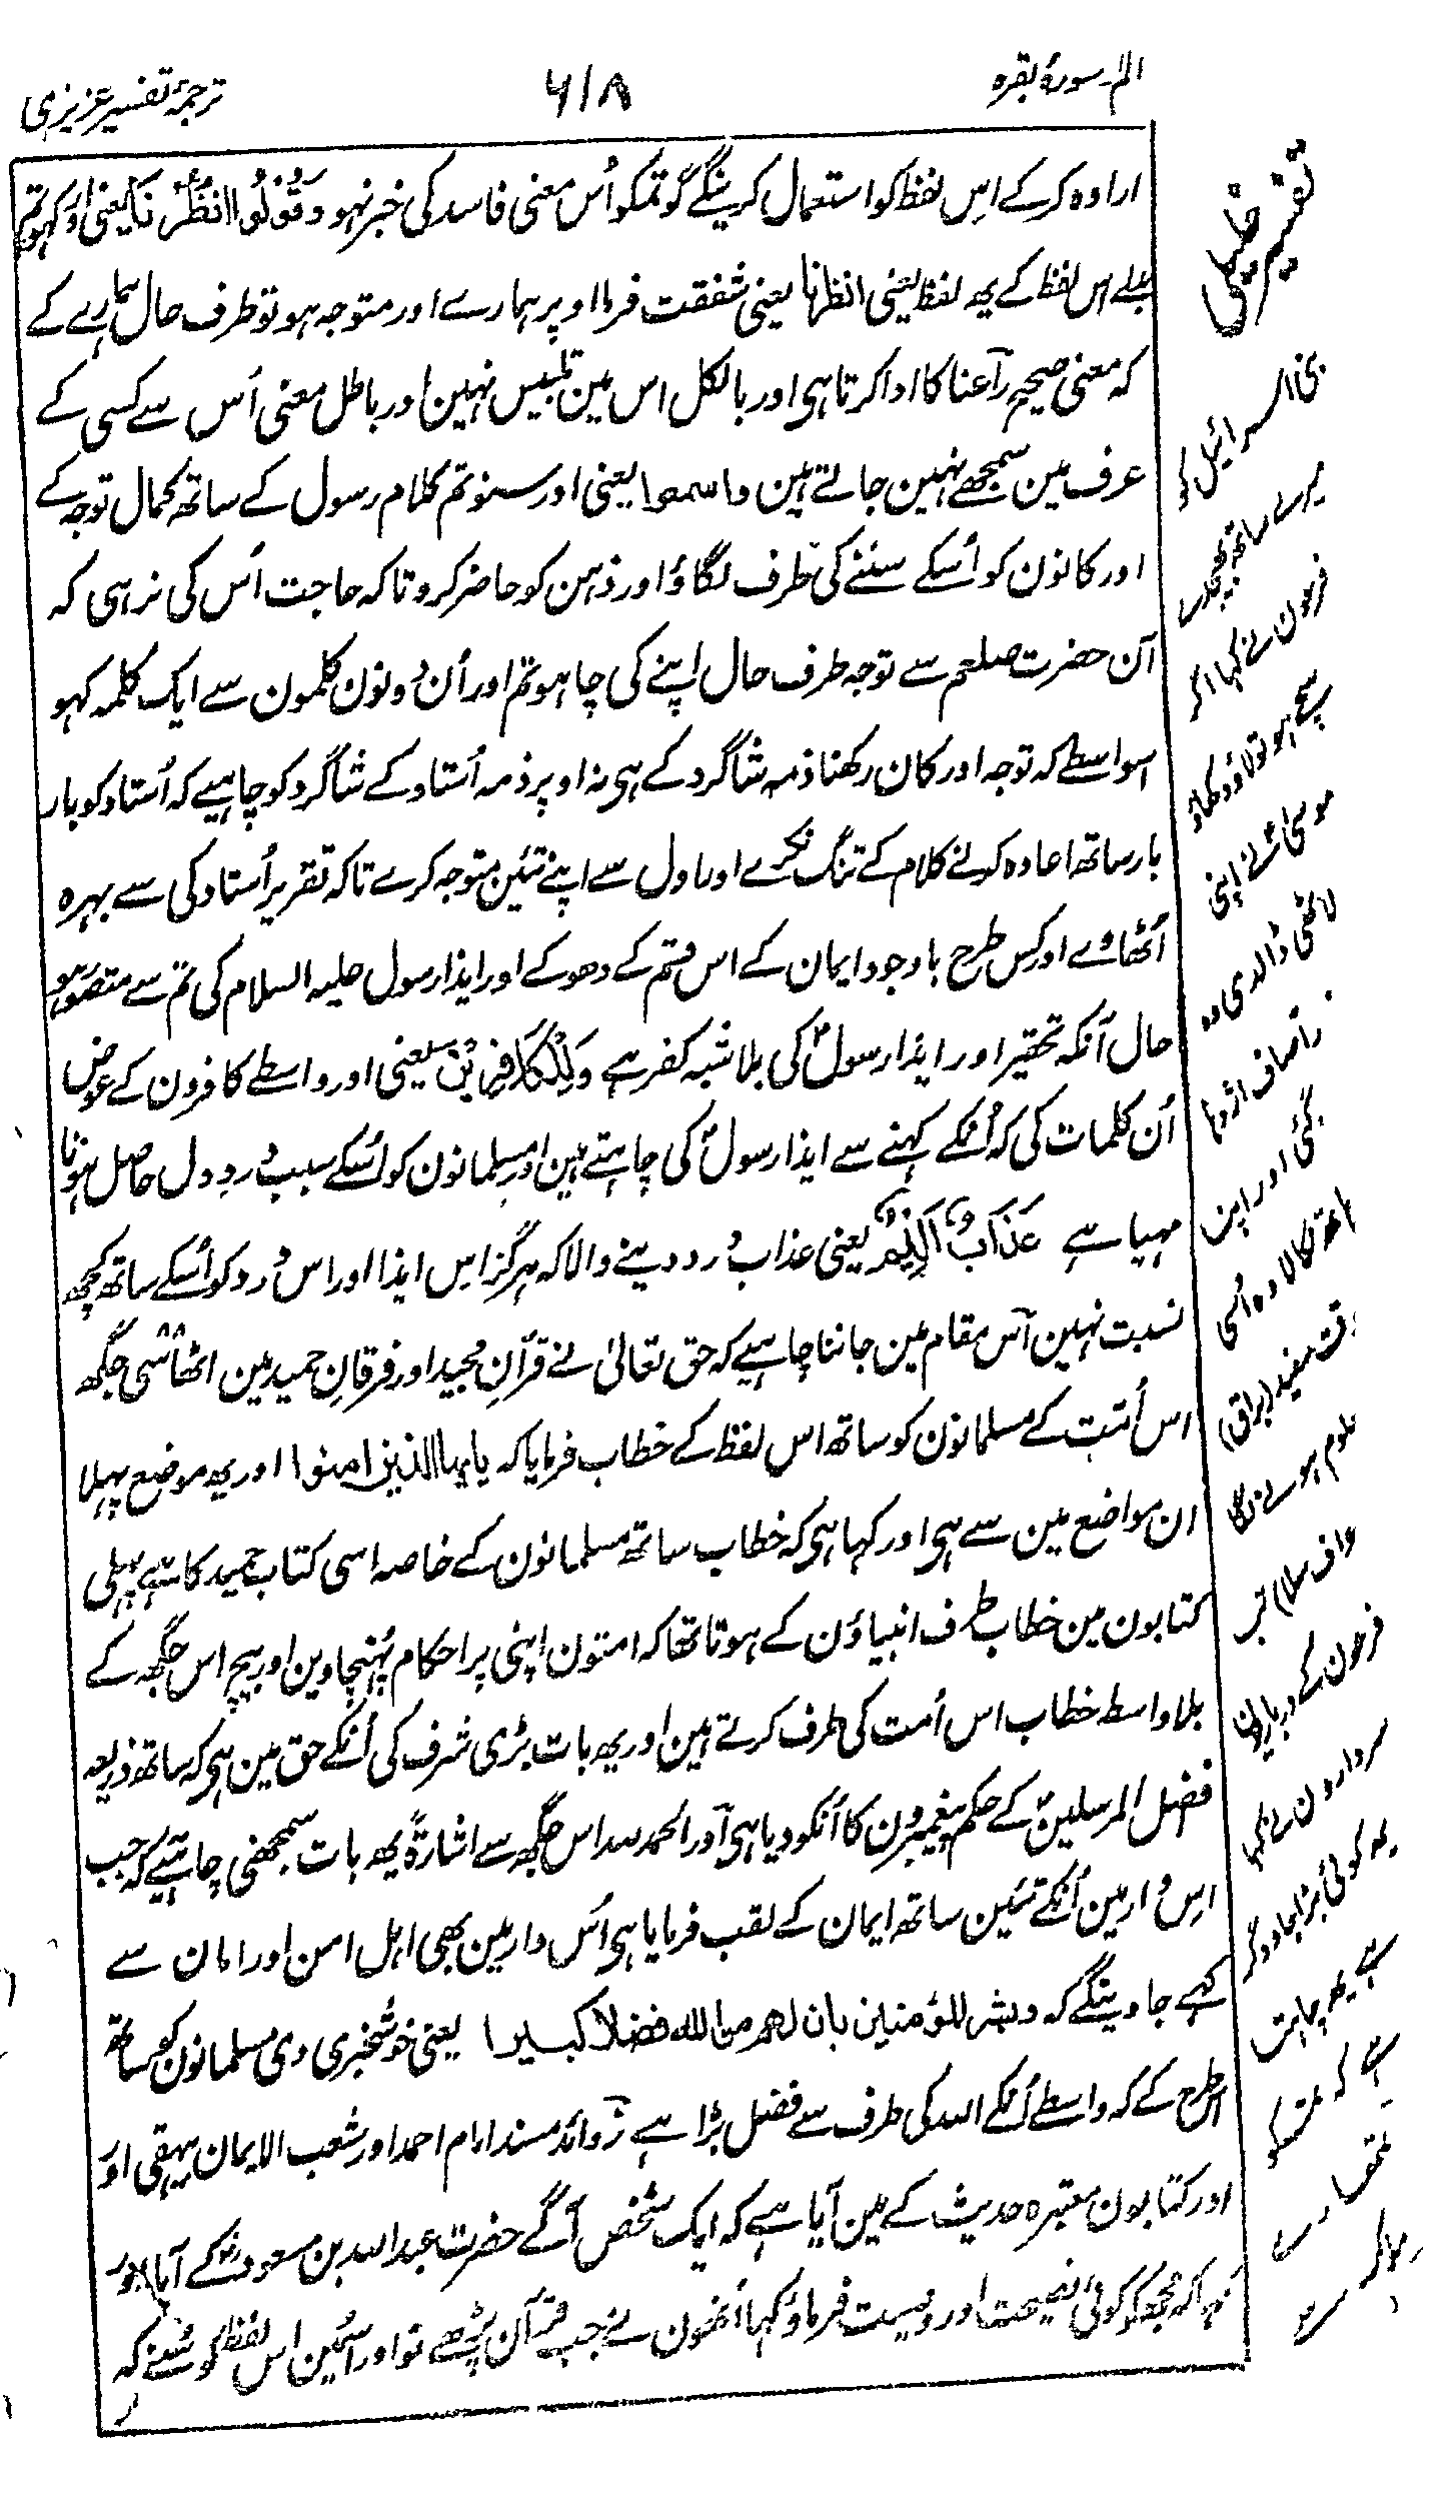 الم۔ سورۂ بقرہ
۶۱۸
ترجمۂ تفسیر عزیزی
ارادہ کرکے اِس لفظ کو استعمال کرینگے گو تمکو اُس معنی فاسد کی خبر نہو وَقُولُوا انْظُرْنَا یعنی اور کہو تم
بدلے اس لفظ کے یہ لفظ یعنی انظرنا یعنی شفقت فرما اوپر ہمارے اور متوجہ ہو تو طرف حال ہمارے کے
کہ معنی صحیح رآعنا کا ادا کرتا ہی اور بالکل اس مین تلبیس نہین اور باطل معنی اُس سے کسی کے
عرف مین سمجھے نہین جاتے ہین واسمعوا یعنی اور سنو تم کلام رسول کے ساتھ کمال توجہ کے
اور کانون کو اُسکے سننے کی طرف لگاؤ اور ذہن کو حاضر کرو تاکہ حاجت اُس کی نرہی کہ
آن حضرت صلعم سے توجہ طرف حال اپنے کی چاہو تم اور اُن دونون کلمون سے ایک کلمہ کہو
اسواسطے کہ توجہ اور کان رکھنا ذمہ شاگرد کے ہی نہ اوپر ذمہ اُستاد کے شاگرد کو چاہیے کہ اُستاد کو بار
بار ساتھ اعادہ کرنے کلام کے تنگ نکرے اور اول سے اپنے تئین متوجہ کرے تاکہ تقریر اُستاد کی سے بہرہ
اُٹھاوے اور کس طرح باوجود ایمان کے اس قسم کے دھوکے اور ایذا رسول علیہ السلام کی تم سے متصور ہو
حال آنکہ تحقیر اور ایذا رسولؐ کی بلا شبہ کفر ہے وَلِلْكَافِرِيْنَ یعنی اور واسطے کافرون کے عوض
اُن کلمات کی کہ اُنکے کہنے سے ایذا رسولؐ کی چاہتے ہین اور مسلمانون کو اُسکے سبب درد دل حاصل ہونا
مہیا ہے عَذَابٌ اَلِيْمٌ یعنی عذاب درد دینے والا کہ ہرگز اس ایذا اور اس درد کو اُسکے ساتھ کچھ
نسبت نہین آس مقام مین جاننا چاہیے کہ حق تعالیٰ نے قرآنِ مجید اور فرقانِ حمید مین اٹھاسی ۸۸ جگھ
اس اُمت کے مسلمانون کو ساتھ اس لفظ کے خطاب فرمایا کہ یایہا الذین امنوا اور یہ موضع پہلا
ان مواضع مین سے ہی اور کہا ہی کہ خطاب ساتھ مسلمانون کے خاصہ اسی کتاب حمید کا ہے پہلی
کتابون مین خطاب طرف انبیاؤن کے ہوتا تھا کہ امتون اپنی پر احکام پُہنچاوین اور بیچ اس جگھ کے
بلا واسطہ خطاب اس اُمت کی طرف کرتے ہین اور یہ بات بڑی شرف کی اُنکے حق مین ہی کہ ساتھ ذریعہ
فضل المرسلینؐ کے حکم پیغمبرون کا اُنکو دیا ہی آور الحمد للہ اس جگھ سے اشارۃً یہ بات سمجھنی چاہئیے کہ جب
اس دار مین اُنکے تئین ساتھ ایمان کے لقب فرمایا ہی اُس دار مین بھی اہل امن اور امان سے
کہے جاوینگے کہ وبشر المؤمنین بان لھم من اللہ فضلا کبیرا یعنی خوشخبری دی مسلمانون کو ساتھ
اس طرح کے کہ واسطے اُنکے اللہ کی طرف سے فضل بڑا ہے زوائد مسند امام احمد اور شعب الایمان بیہقی اور
اور کتابون معتبرہ حدیث کے مین آیا ہے کہ ایک شخص آگے حضرت عبد اللہ بن مسعودؓ کے آیا اور
کہا کہ مجھکو کوئی نصیحت اور وصیت فرماؤ کہا اُنھون نے جب قرآن پڑھے تو اور اسمین اس لفظ کو سُنے کہ
تفسیر خلیلی
بنی اسرائیل کو
میرے ساتھ بھیجدے
فرعون نے کہا اگر
سچے ہو تو لاؤ دکھاؤ
موسیٰؑ نے اپنی
لاٹھی ڈالدی وہ
صاف اژدہا
بنگئی اور اپنا
ہاتھ نکالا وہ اُسی
وقت سفید (براق)
معلوم ہونے لگا
فرعون کے درباری
سردارون نے کہا
یہ کوئی بڑا جادوگر
ہے یہ چاہتا
ہے کہ تم کو